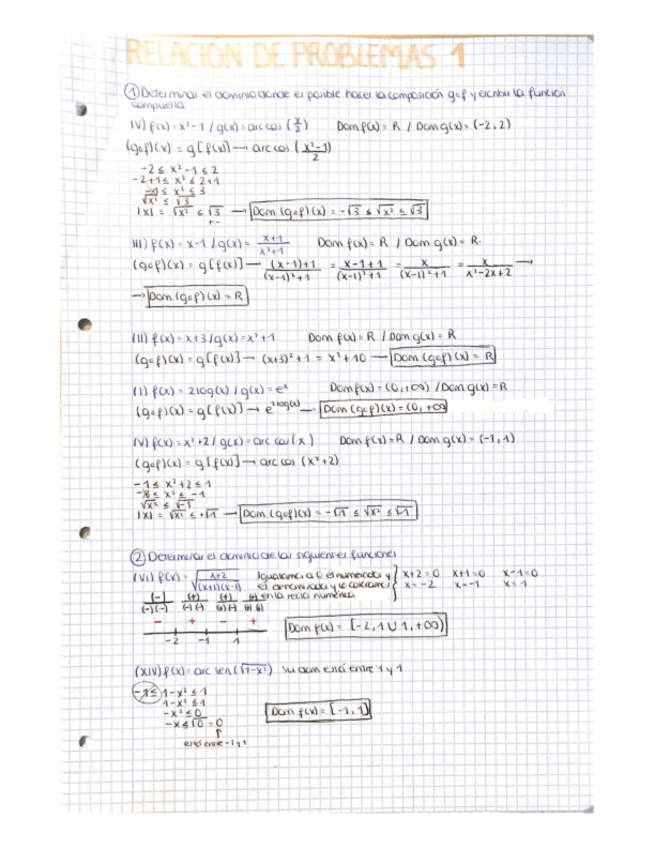 RELACIÓN DE PROBLEMAS 1
① Determinar el dominio donde es posible hacer la composición g∘f y escribir la función
compuesta
IV) f(x) = x² - 1 / g(x) = arc cos (x/2) Dom f(x) = R / Dom g(x) = (-2, 2)
(g∘f)(x) = g[f(x)] → arc cos (x²-1)/2
-2 ≤ x² - 1 ≤ 2
-2+1 ≤ x² ≤ 2+1
-1 ≤ x² ≤ 3
√x² ≤ √3
|x| = √x² ≤ √3 → Dom (g∘f)(x) = -√3 ≤ √x² ≤ √3
+-
III) f(x) = x-1 / g(x) = x+1/x²+1 Dom f(x) = R / Dom g(x) = R.
(g∘f)(x) = g[f(x)] → (x-1)+1/(x-1)²+1 = x-1+1/(x-1)²+1 = x/(x-1)²+1 = x/x²-2x+2 →
→ Dom (g∘f)(x) = R
(II) f(x) = x+3 / g(x) = x²+1 Dom f(x) = R / Dom g(x) = R
(g∘f)(x) = g[f(x)] → (x+3)² + 1 = x² + 10 → Dom (g∘f)(x) = R
(I) f(x) = 2log(x) / g(x) = eˣ Dom f(x) = (0, +∞) / Dom g(x) = R
(g∘f)(x) = g[f(x)] → e^2log(x) → Dom (g∘f)(x) = (0, +∞)
(V) f(x) = x²+2 / g(x) = arc cos(x) Dom f(x) = R / Dom g(x) = (-1, 1)
(g∘f)(x) = g[f(x)] → arc cos (x²+2)
-1 ≤ x²+2 ≤ 1
-3 ≤ x² ≤ -1
√x² ≤ √-1
|x| = √x² ≤ +√1 → Dom (g∘f)(x) = -√1 ≤ √x² ≤ √-1
② Determinar el dominio de las siguientes funciones
(VI) f(x) = √x+2/√(x+1)(x-1) Igualamos a 0 el numerador y x+2=0 x+1=0 x-1=0
el denominador y lo colocamos x=-2 x=-1 x=1
en la recta numérica
(-) (+) (+) (+)
(-)(-) (-)(-) (+)(-) (+)(+)
- + - +
-2 -1 1
Dom f(x) = [-2, 1 ∪ 1, +∞)
(XIV) f(x) = arc sen (√1-x²) su dom está entre 1 y 1
-1 ≤ 1-x² ≤ 1
1-x² ≤ 1
-x² ≤ 0
-x ≤ √0 = 0
Dom f(x) = [-1, 1]
está entre -1 y 1